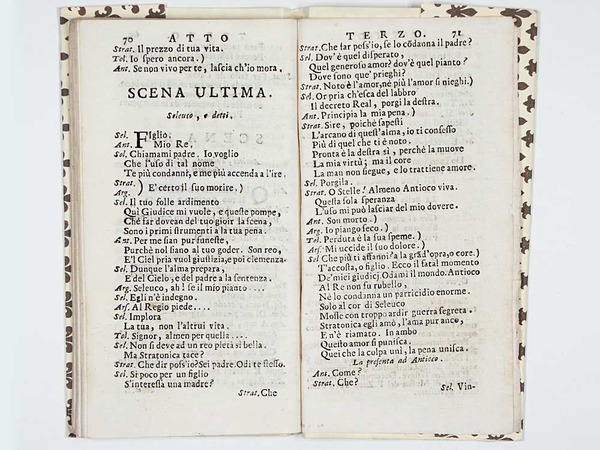 70 ATTO
Strat. Il prezzo di tua vita.
Tol. Io spero ancora.)
Ant. Se non vivo per te, lascia ch'io mora.
SCENA ULTIMA.
Seleuco, e detti.
Sel. FIglio.
Ant. Mio Re.
Sel. Chiamami padre. Io voglio
Che l'uso di tal nome
Te più condanni, e me più accenda a l'ire.
Strat. )
Arg. ) E' certo il suo morire.)
Sel. Il tuo folle ardimento
Quì Giudice mi vuole, e queste pompe,
Che far dovean del tuo gioir la scena,
Sono i primi stromenti a la tua pena.
Ant. Per me sian pur funeste,
Purchè nol sano al tuo goder. Son reo,
E'l Ciel pria vuol giustizia, e poi clemenza.
Sel. Dunque l'alma prepara,
E del Cielo, e del padre a la sentenza.
Arg. Seleuco, ah! se il mio pianto....
Sel. Egli n'è indegno.
Ars. Al Regio piede....
Sel. Implora
La tua, non l'altrui vita.
Tol. Signor, almen per quella....
Sel. Non si deve ad un reo pietà sì bella.
Ma Stratonica tace?
Strat. Che dir poss'io? Sei padre. Odi te stesso.
Sel. Sì poco per un figlio
S'interessa una madre?
Strat. Che
TERZO. 71
Strat. Che far poss'io, se lo cōdanna il padre?
Sel. Dov'è quel disperato,
Quel generoso amor? dov'è quel pianto?
Dove son que' prieghi?
Strat. Noto è l'amor, nè più l'amor si nieghi.)
Sel. Or pria ch'esca del labbro
Il decreto Real, porgi la destra.
Ant. Principia la mia pena.)
Strat. Sire, poichè sapesti
L'arcano di quest'alma, io ti confesso
Più di quel che ti è noto.
Pronta è la destra sì, perchè la muove
La mia virtù; ma il core
La man non segue, e lo trattiene amore.
Sel. Porgila.
Strat. O Stelle! Almeno Antioco viva.
Questa sola speranza
L'uso mi può lasciar del mio dovere.
Ant. Son morto.)
Arg. Io piango seco.)
Tol. Perduta è la sua speme.)
Ars. Mi uccide il suo dolore.)
Sel. Che più ti affanni? a la grād'opra, o core.)
T'accosta, o figlio. Ecco il fatal momento
De' miei giudicj. Odami il mondo. Antioco
Al Re non fu rubello,
Nè lo condanna un parricidio enorme.
Solo al cor di Seleuco
Mosse con troppo ardir guerra segreta.
Stratonica egli amò, l'ama pur anco,
E n'è riamato. In ambo
Questo amor si punisca.
Quei che la colpa unì, la pena unisca.
La presenta ad Antioco.
Ant. Come?
Strat. Che?
Sel. Vin-